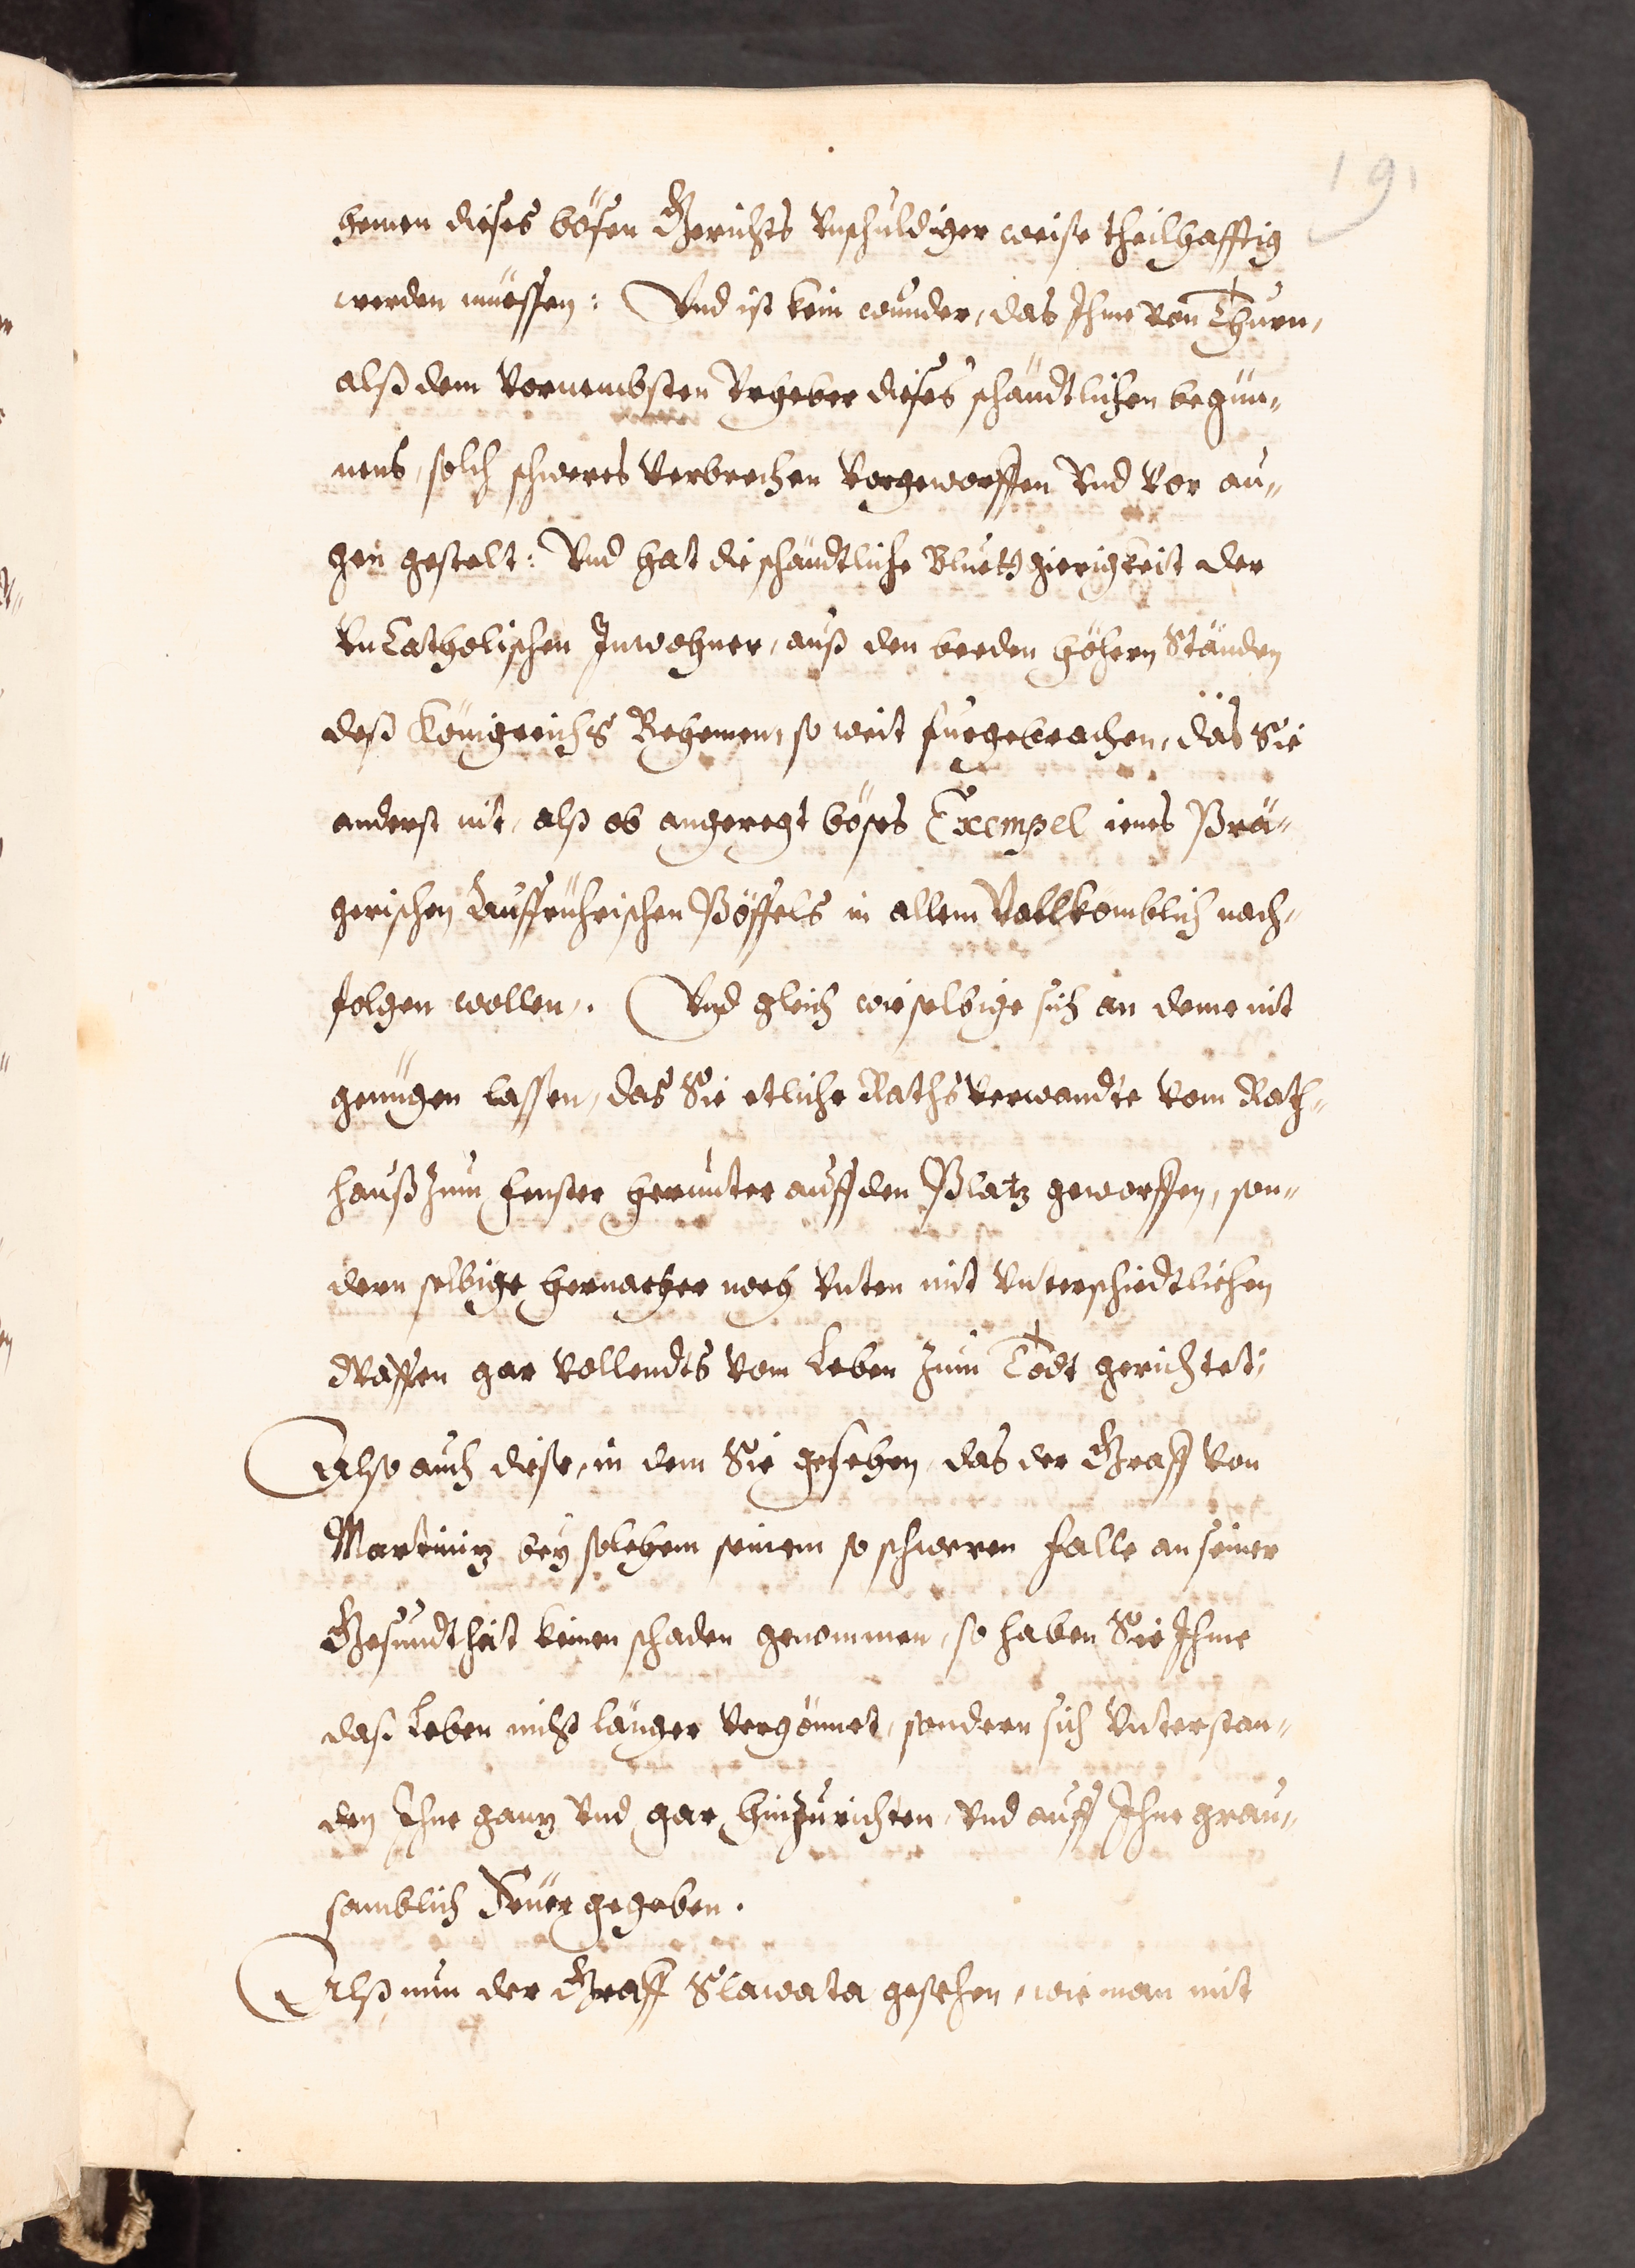 191
hemen dieses bösen Gerichts Vnschuldiger weise theilhafftig
werden müessen: Vnd ist kein wunder, das Ihme von Thurn,
alß dem Vornembsten Vrheber dieses schändtlichen begün-
nens, solch schweres Verbrechen Vorgeworffen Vnd Vor au-
gen gestelt: Vnd hat die schändtliche Bluettgierigkeit der
VnCatholischen Inwohner, auß den beeden höhern Ständen
deß Königreichs Behemen, so weit fürgebrachen, das Sie
anderst nit, alß ob angeregt böses Exempel ienes Prä-
gerischen Auffrührischen Pöffels in allem Vollkomblich nach-
folgen wollen. Vnd gleich wie selbige sich an deme nit
genügen lassen, das Sie etliche Rathsverwandte vom Rath-
hauß zum fenster herunter auff den Platz geworffen, son-
dern selbige hernacher noch Vnten mit Vnterschiedtlichen
Waffen gar Vollendts Vom Leben zum Todt gerichtet;
Also auch diese, in dem Sie gesehen, das der Graff Von
Martiniz bey solchem seinem so schweren Falle an seiner
Gesundtheit keinen schaden genommen, so haben Sie Ihme
das Leben nicht länger Vergönnet, sondern sich Vnterstan-
den Ihne ganz Vnd gar hinzurichten, Vnd auff Ihne grau-
samblich Feüer gegeben.
Alß nun der Graff Slawata gesehen, wie man mit